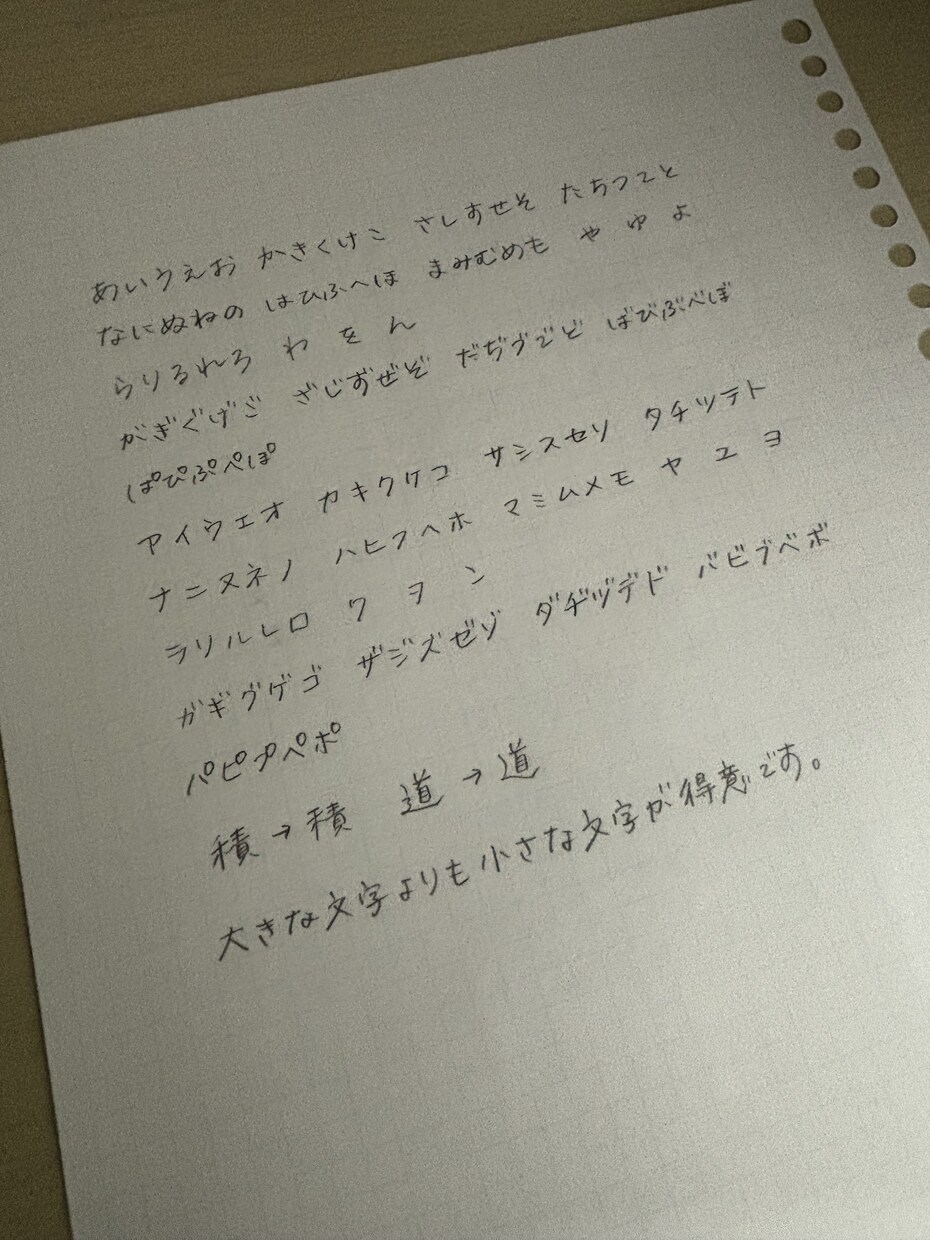 あいうえお かきくけこ さしすせそ たちつてと
なにぬねの はひふへほ まみむめも や ゆ よ
らりるれろ わ を ん
がぎぐげご ざじずぜぞ だぢづでど ばびぶべぼ
ぱぴぷぺぽ
アイウエオ カキクケコ サシスセソ タチツテト
ナニヌネノ ハヒフヘホ マミムメモ ヤ ユ ヨ
ラリルレロ ワ ヲ ン
ガギグゲゴ ザジズゼゾ ダヂヅデド バビブベボ
パピプペポ
積→積 道→道
大きな文字よりも小さな文字が得意です。